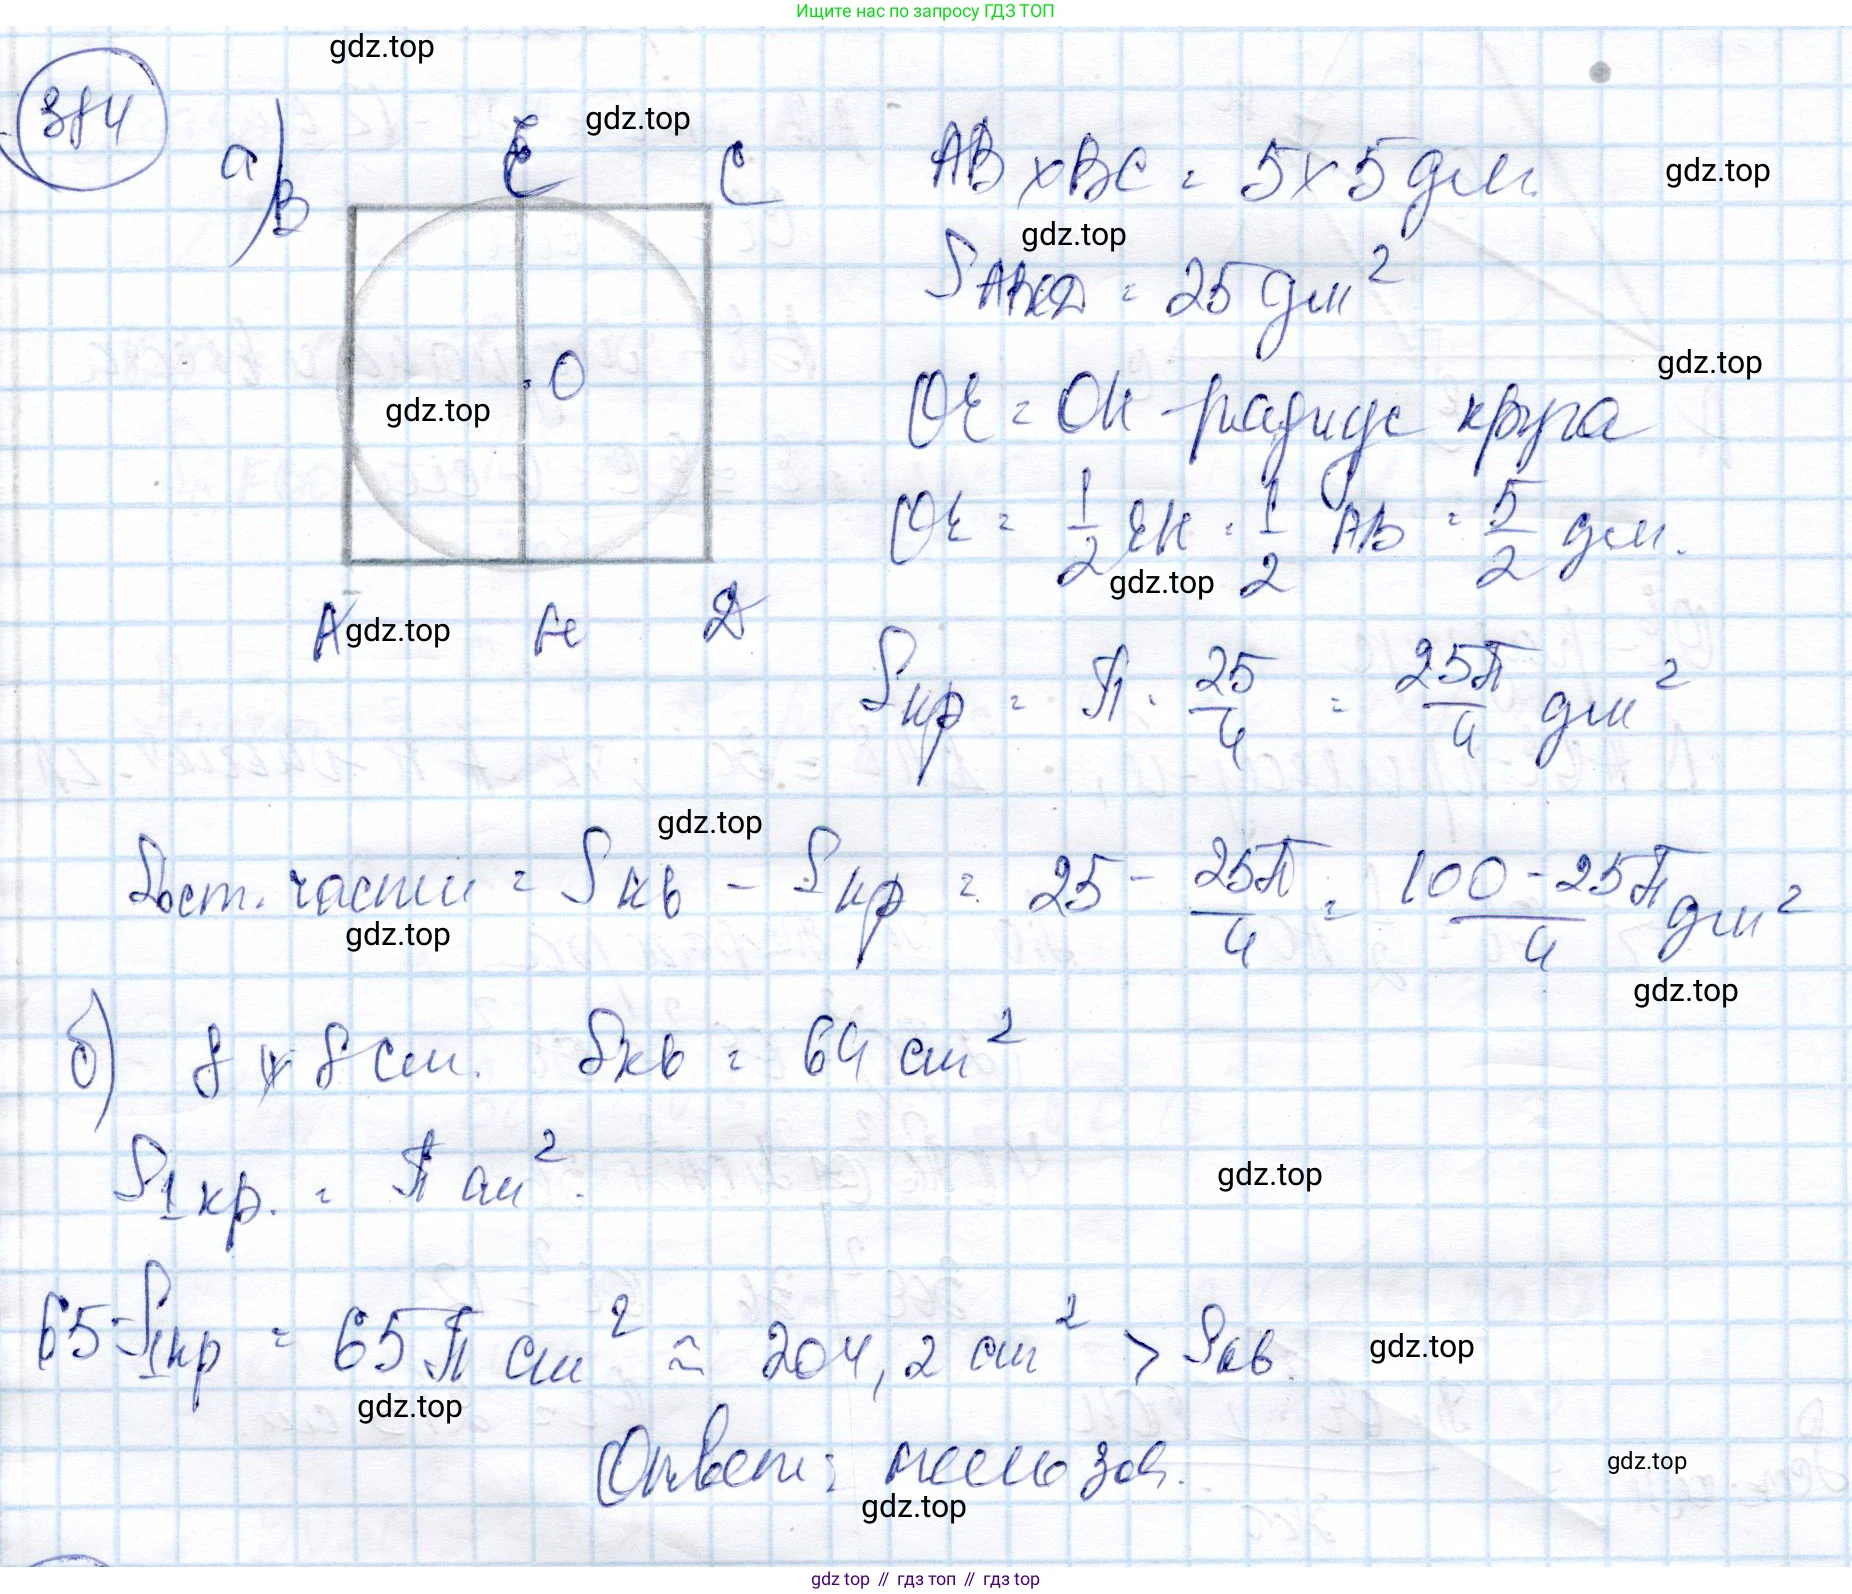 Ищите нас по запросу ГДЗ ТОП
gdz.top
384
а)
B E C
gdz.top
AB x BC = 5 x 5 дм.
gdz.top
gdz.top
S ABCD = 25 дм²
gdz.top
O
gdz.top
OE = OK - радиус круга
OE = 1/2 EK = 1/2 AB = 5/2 дм.
gdz.top
A K D
gdz.top
Sкр = π · 25/4 = 25π/4 дм²
gdz.top
Sост. части = Sкв - Sкр = 25 - 25π/4 = 100 - 25π/4 дм²
gdz.top
gdz.top
б) 8 x 8 см. Sкв = 64 см²
S1кр. = π см².
gdz.top
65·S1кр = 65π см² ≈ 204,2 см² > Sкв.
gdz.top
gdz.top
Ответ: нельзя.
gdz.top
gdz.top
gdz top // гдз топ // гдз top